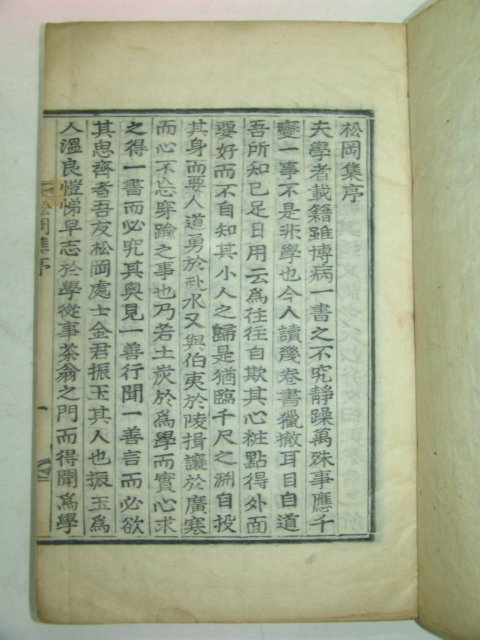 松岡集序
夫學者載籍雖博病一書之不究靜躁萬殊事應千
變一事不是非學也今人讀幾卷書獵撤耳目自道
吾所知已足日用云爲往往自欺其心粧點得外面
要好而不自知其小人之歸是猶臨千尺之淵自投
其身而要人道勇於赴水又與伯夷於陵揖讓於廣寒
而心不忘穿踰之事也乃若土炭於爲學而實心求
之得一書而必究其奧見一善行聞一善言而必欲
其思齊者吾友松岡處士金君振玉其人也振玉爲
人溫良愷悌早志於學從事茶翁之門而得聞爲學
松岡集序
一